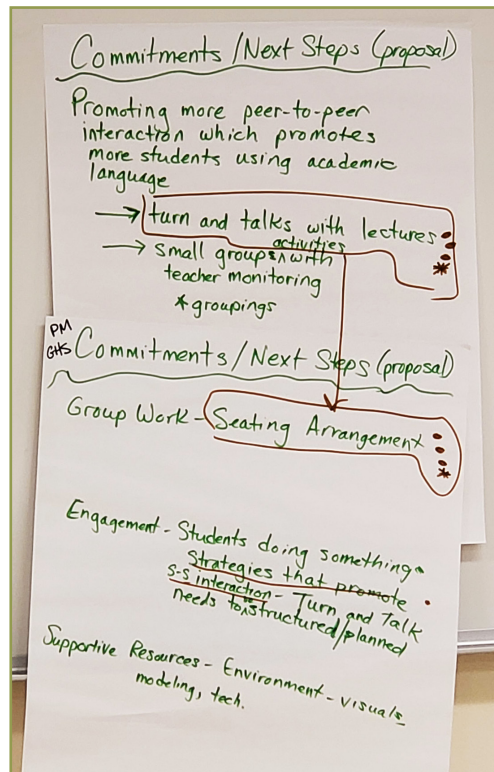 Commitments/Next Steps (proposal)
Promoting more peer-to-peer
interaction which promotes
more students using academic
language
→ turn and talks with lectures
→ small groups ^ activities with
teacher monitoring
* groupings
PM
GHS
Commitments/Next Steps (proposal)
Group Work - Seating Arrangement
Engagement - Students doing something
Strategies that promote
S-S interaction - Turn and Talk
needs to ^ be structured/planned
Supportive Resources - Environment - visuals
modeling, tech.